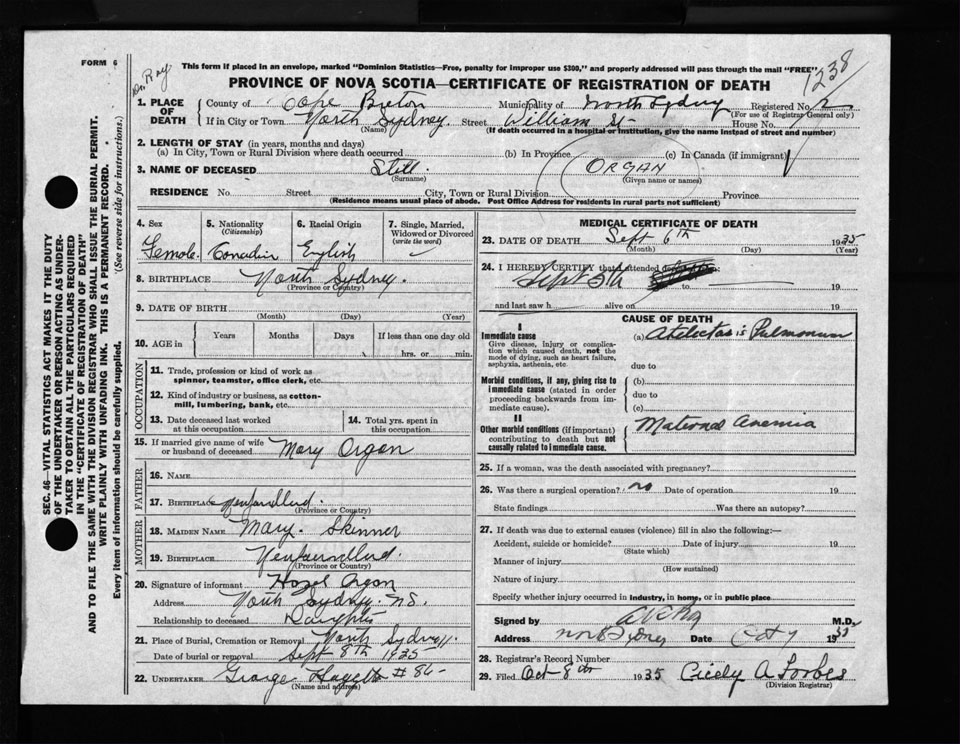 FORM 6
This form if placed in an envelope, marked "Dominion Statistics—Free, penalty for improper use $300," and properly addressed will pass through the mail "FREE"
1238
PROVINCE OF NOVA SCOTIA—CERTIFICATE OF REGISTRATION OF DEATH
1. PLACE OF DEATH County of Cape Breton Municipality of North Sydney Registered No.
(For use of Registrar General only)
If in City or Town North Sydney. Street William St House No.
(Name) (If death occurred in a hospital or institution, give the name instead of street and number)
2. LENGTH OF STAY (in years, months and days)
(a) In City, Town or Rural Division where death occurred (b) In Province (c) In Canada (if immigrant)
3. NAME OF DECEASED Still. ORGAN
(Surname) (Given name or names)
RESIDENCE No. Street City, Town or Rural Division Province
(Residence means usual place of abode. Post Office Address for residents in rural parts not sufficient)
4. Sex 5. Nationality (Citizenship) 6. Racial Origin 7. Single, Married, Widowed or Divorced (write the word)
Female. Canadian English
8. BIRTHPLACE North Sydney.
(Province or Country)
9. DATE OF BIRTH
(Month) (Day) (Year)
10. AGE in Years Months Days If less than one day old
hrs. or min.
OCCUPATION
11. Trade, profession or kind of work as spinner, teamster, office clerk, etc.
12. Kind of industry or business, as cotton-mill, lumbering, bank, etc.
13. Date deceased last worked at this occupation 14. Total yrs. spent in this occupation
15. If married give name of wife or husband of deceased Mary Organ
FATHER
16. NAME
17. BIRTHPLACE Newfoundland.
(Province or Country)
MOTHER
18. MAIDEN NAME Mary. Skinner
19. BIRTHPLACE Newfoundland.
(Province or Country)
20. Signature of informant Hazel Organ
Address North Sydney. N.S.
Relationship to deceased Daughter
21. Place of Burial, Cremation or Removal North Sydney.
Date of burial or removal Sept 8th 1935
22. UNDERTAKER George # 86-
(Name and address)
MEDICAL CERTIFICATE OF DEATH
23. DATE OF DEATH Sept 6th 1935
(Month) (Day) (Year)
24. I HEREBY CERTIFY that I attended deceased from:
Sept 5th to 19
and last saw h alive on 19
CAUSE OF DEATH
I
Immediate cause (a) Atelectasis Pulmonum
Give disease, injury or complication which caused death, not the mode of dying, such as heart failure, asphyxia, asthenia, etc.
due to
Morbid conditions, if any, giving rise to immediate cause (stated in order proceeding backwards from immediate cause).
(b)
due to
(c)
II
Other morbid conditions (if important) contributing to death but not causally related to immediate cause.
Maternal Anemia
25. If a woman, was the death associated with pregnancy?
26. Was there a surgical operation? no Date of operation 19
State findings Was there an autopsy?
27. If death was due to external causes (violence) fill in also the following:—
Accident, suicide or homicide? Date of injury 19
(State which)
Manner of injury
(How sustained)
Nature of injury
Specify whether injury occurred in industry, in home, or in public place
Signed by M.D.
Address North Sydney Date Oct 7 19
28. Registrar's Record Number
29. Filed Oct 8th 1935 Cicely A Forbes
(Division Registrar)
SEC. 46—VITAL STATISTICS ACT MAKES IT THE DUTY
OF THE UNDERTAKER OR PERSON ACTING AS UNDER-
TAKER TO OBTAIN ALL THE PARTICULARS REQUIRED
IN THE "CERTIFICATE OF REGISTRATION OF DEATH"
AND TO FILE THE SAME WITH THE DIVISION REGISTRAR WHO SHALL ISSUE THE BURIAL PERMIT.
WRITE PLAINLY WITH UNFADING INK. THIS IS A PERMANENT RECORD.
Every item of information should be carefully supplied. (See reverse side for instructions.)